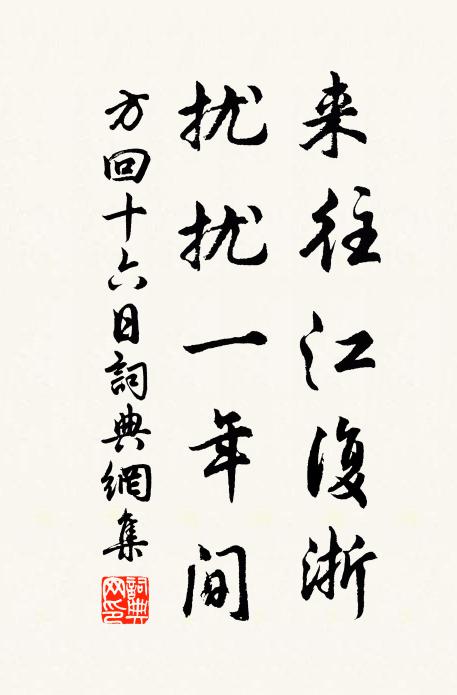 来往江復浙
扰扰一年间
方回十六日詞典網集
詞典网印